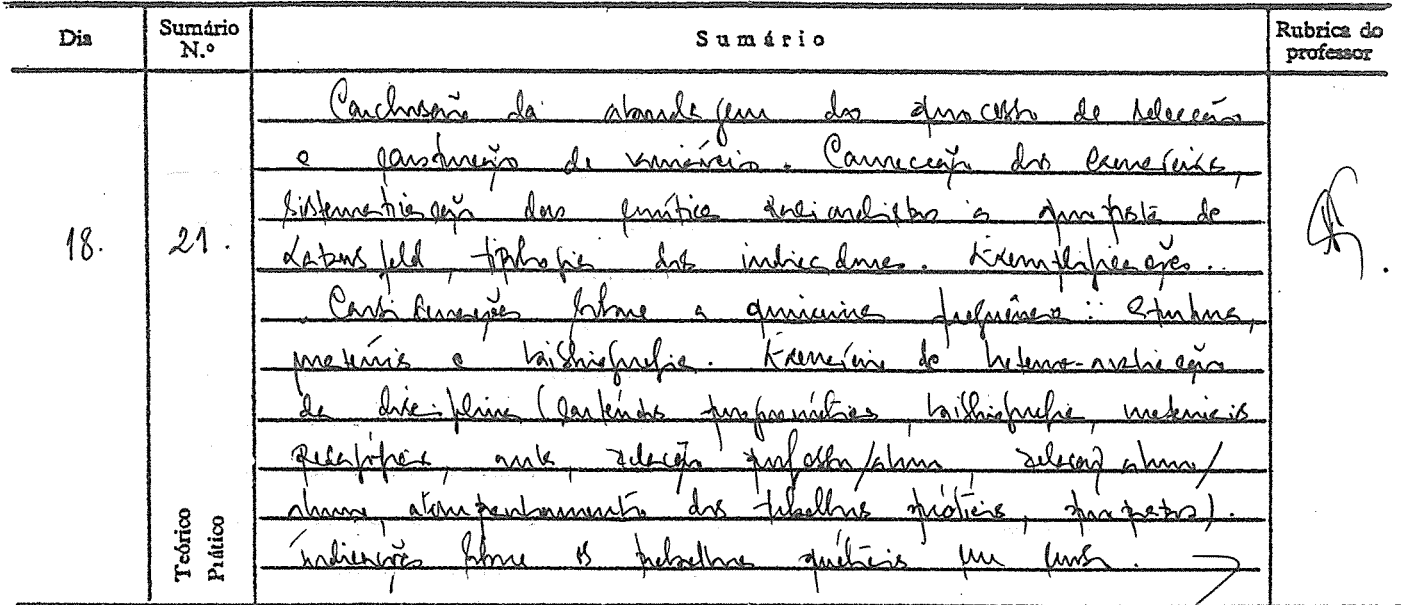 Dia
Sumário N.º
Sumário
Rubrica do professor
18.
21.
Teórico
Prático
Conclusão da abordagem do processo de selecção
e construção de variáveis. Correcção dos exercícios,
sistematização das críticas racionalistas à proposta de
Lazarsfeld, tipologia dos indicadores. Exemplificações..
Considerações sobre a primeira frequência: estrutura,
matéria e bibliografia. Exercício de hetero-avaliação
da disciplina (conteúdos programáticos, bibliografia, materiais
pedagógicos, aula, relação professor/aluno, relação aluno/
aluno, acompanhamento dos trabalhos práticos, propostas).
Indicações sobre os trabalhos práticos em curso.